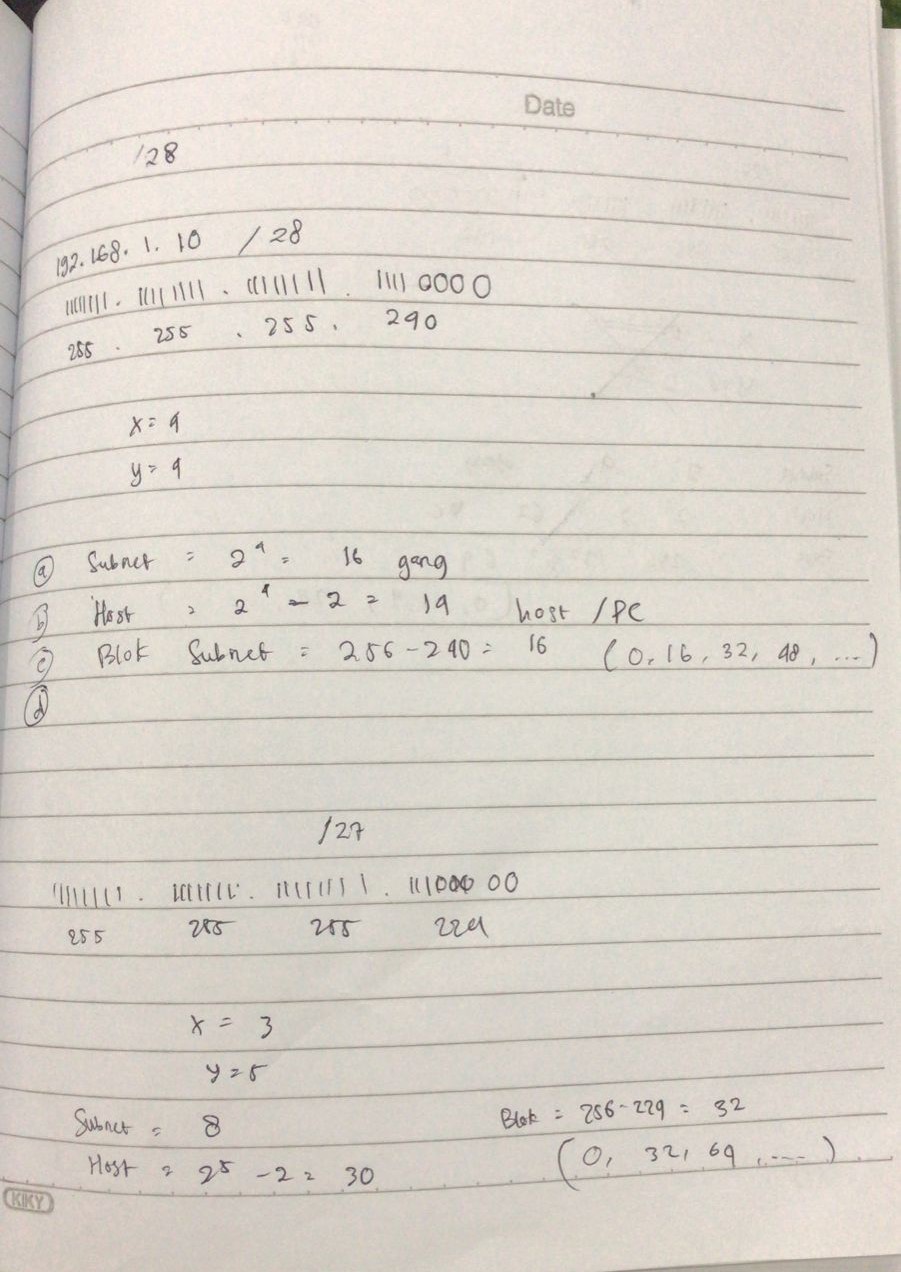 Date
/28
192.168.1.10 /28
11111111.11111111.11111111.11110000
255.255.255.240
x = 4
y = 4
(a) Subnet = 2^4 = 16 gang
(b) Host = 2^4 - 2 = 14 host/PC
(c) Blok Subnet = 256-240 = 16 (0, 16, 32, 48, ...)
(d)
/27
11111111.11111111.11111111.11100000
255 255 255 224
x = 3
y = 5
Subnet = 8
Blok = 256-224 = 32
Host = 2^5 - 2 = 30
(0, 32, 64, ....)
KIKY